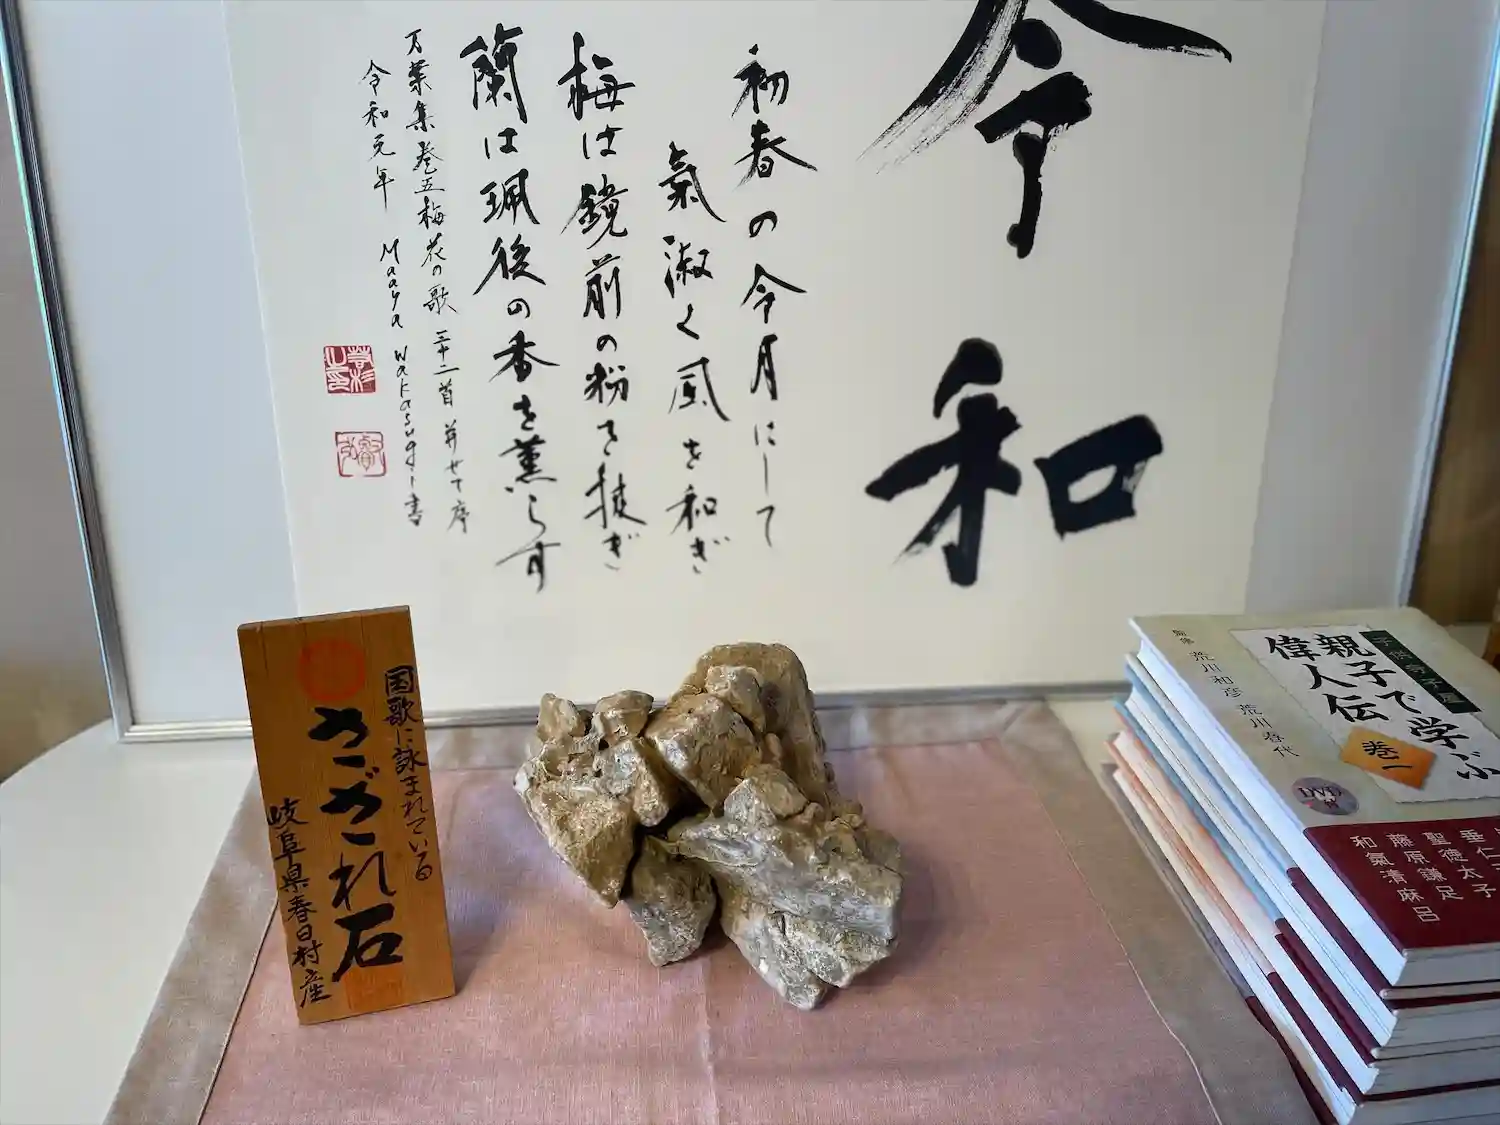 令和
初春の令月にして
氣淑く風を和ぎ
梅は鏡前の粉を披ぎ
蘭は珮後の香を薫らす
万葉集巻五梅花の歌 三十二首 并せて序
令和元年 Maaya Wakasugi 書
国歌に詠まれている
さざれ石
岐阜県春日村産
親子で学ぶ
偉人伝
巻一
監修 荒川和彦 荒川春代
DVD付
垂仁
聖徳太子
藤原鎌足
和氣清麻呂